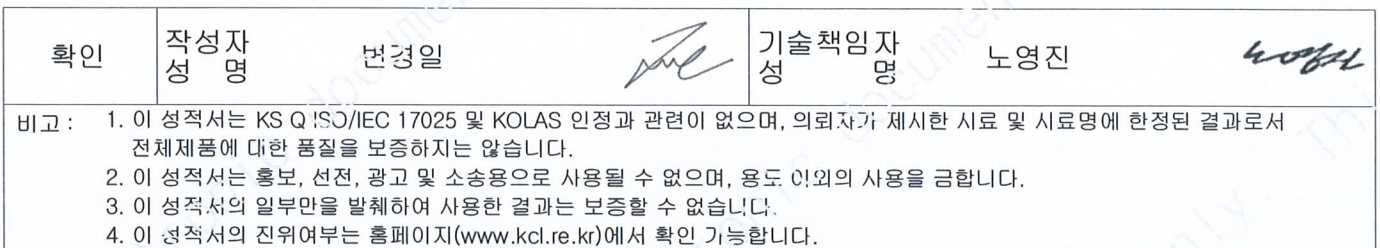 확인 작성자 성 명 변경일 기술책임자 성 명 노영진 노영진
비고 : 1. 이 성적서는 KS Q ISO/IEC 17025 및 KOLAS 인정과 관련이 없으며, 의뢰자가 제시한 시료 및 시료명에 한정된 결과로서
전체제품에 대한 품질을 보증하지는 않습니다.
2. 이 성적서는 홍보, 선전, 광고 및 소송용으로 사용될 수 없으며, 용도 이외의 사용을 금합니다.
3. 이 성적서의 일부만을 발췌하여 사용한 결과는 보증할 수 없습니다.
4. 이 성적서의 진위여부는 홈페이지(www.kcl.re.kr)에서 확인 가능합니다.